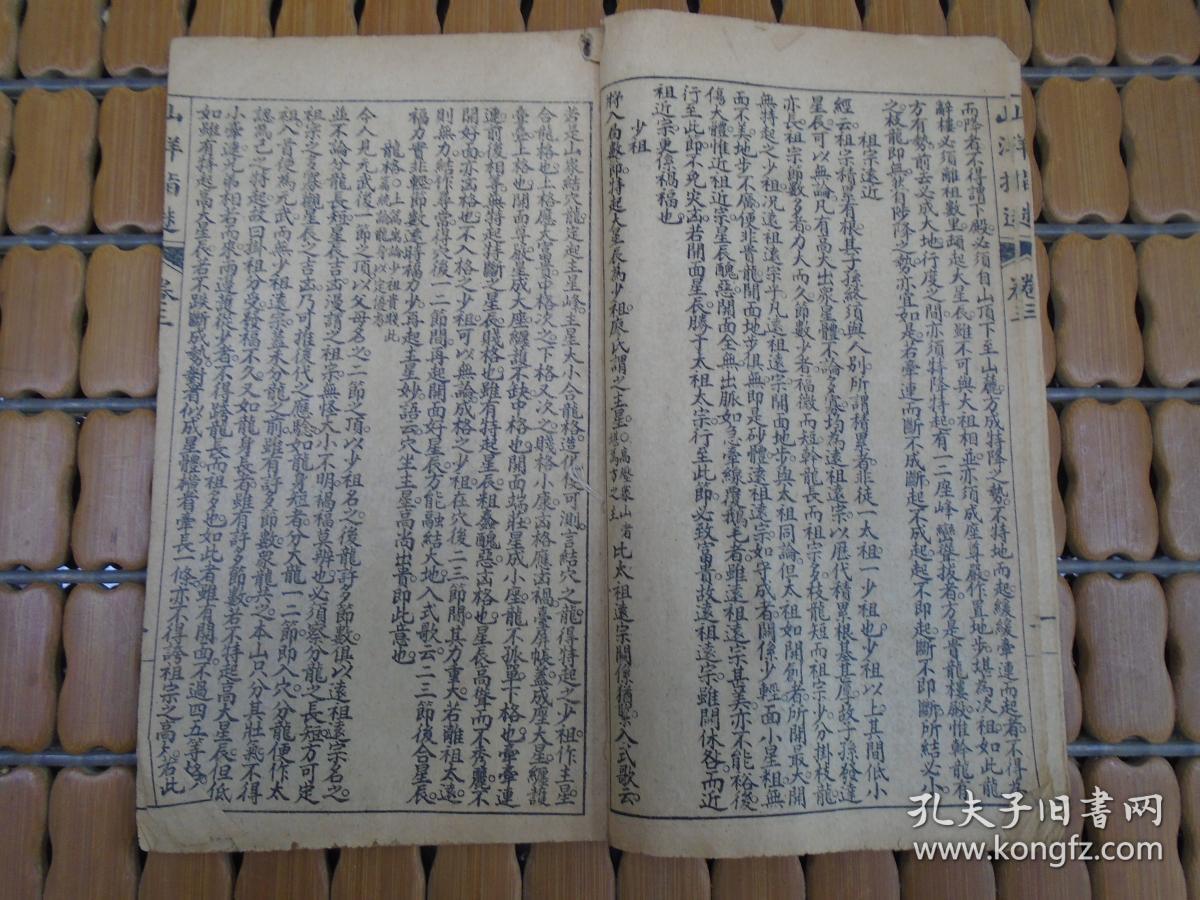 山洋指迷 卷三 一
而降者不得謂下殿必須自山頂下至山麓方成特降之勢不特地而起緩緩牽連而起者不得為
辭樓必須離祖數里頓起大星辰雖不可與大祖相並亦須成座尊嚴作置地步堪為次祖如此龍
方有勢前去又成大地行度之間亦須特降特起有一二座峰巒聳拔者方是貴龍樓殿惟幹龍有
之枝龍即無然有陟降之勢亦宜如是若牽連而斷不成斷起不成起起不即起斷不即斷所結必小
祖宗遠近
經云祖宗積累有根基子孫終須與人別所謂積累者非徒一太祖一少祖也少祖以上其間低小
星辰可以無論凡有高大出眾星體不論多寡均為遠祖遠宗以歷代積累根基甚厚故子孫發達
亦長祖宗節數多者力大而久節數少者福微而短幹龍長而祖宗多枝龍短而祖宗少分掛枝龍
無特起之少祖況遠祖遠宗乎凡遠祖遠宗開面地步與太祖同論但太祖如開創者所關最大開
面不美地步不廣便非貴龍開面地步俱無即是砂體遠祖遠宗如守成者關係少輕一面小星粗無
傷大體惟近祖近宗星辰醜惡開面全無出脈如急牽線癭鵝毛者雖遠祖遠宗甚美亦不能裕後
行至此節不免災凶若開面星辰勝于太祖太宗行至此節必致富貴故遠祖遠宗雖關休咎而近
祖近宗更係禍福也
少祖
將入局數節特起大星辰為少祖廖氏謂之主星高壓眾山者堪為方之主比太祖遠宗關係猶緊入式歌云
若是山家結穴龍定起主星峰主星大小合龍格造化便可測言結穴之龍得特起之少祖作主星
合龍格也上格應大富貴中格次之下格又次之賤格小康凶格應凶禍臺屏帳蓋成座大星纏護
臺臺上格也開面尊嚴星成大座纏護不缺中格也開面端壯星成小座龍不孤單下格也牽牽連
連前後相牽無特起特斷之星辰賤格也雖有特起星辰粗蠢醜惡凶格也星辰高聳而不秀麗不
開好面亦凶格也不入格之少祖可以無論成格之少祖在穴後二三節間其力重大若離祖太遠
則無力結作尋常得穴後一二節間再起開面好星辰方能融結大地入式歌云二三節後合星辰
福力實非輕節數遠時福力少再起主星妙語云穴坐主星高尚出貴即此意也
龍格上篇專論少祖貴賤此篇統論龍身以定優劣
今人見元武後一節之頂以父母名之二節之頂以少祖名之後龍許多節數俱以遠祖遠宗名之
並不論分龍長短星辰吉凶漫謂之祖宗無怪大小不明禍福莫辨也必須察分龍之長短方可定
祖宗之多寡觀星辰之吉凶乃可推後代之應驗如龍身短者分大龍一二節即入穴分龍便作太
祖入首便為元武而無少祖遠宗蓋未分龍之前雖有許多節數眾龍共之本山只分其壯氣不得
認為己之特起故曰掛祖分受發福不久又如龍身長者雖有許多節數若不特起高大星辰但低
小牽連兄弟相右而來兩邊護從少者不得誇龍長而祖多也如此者雖有開面不過四五等穴
如雖有特起高大星辰若不跌斷成勢對者似成星體橫者牽長一條亦不得誇祖宗之高大若此
山洋指迷 卷三 一
孔夫子旧书网
www.kongfz.com